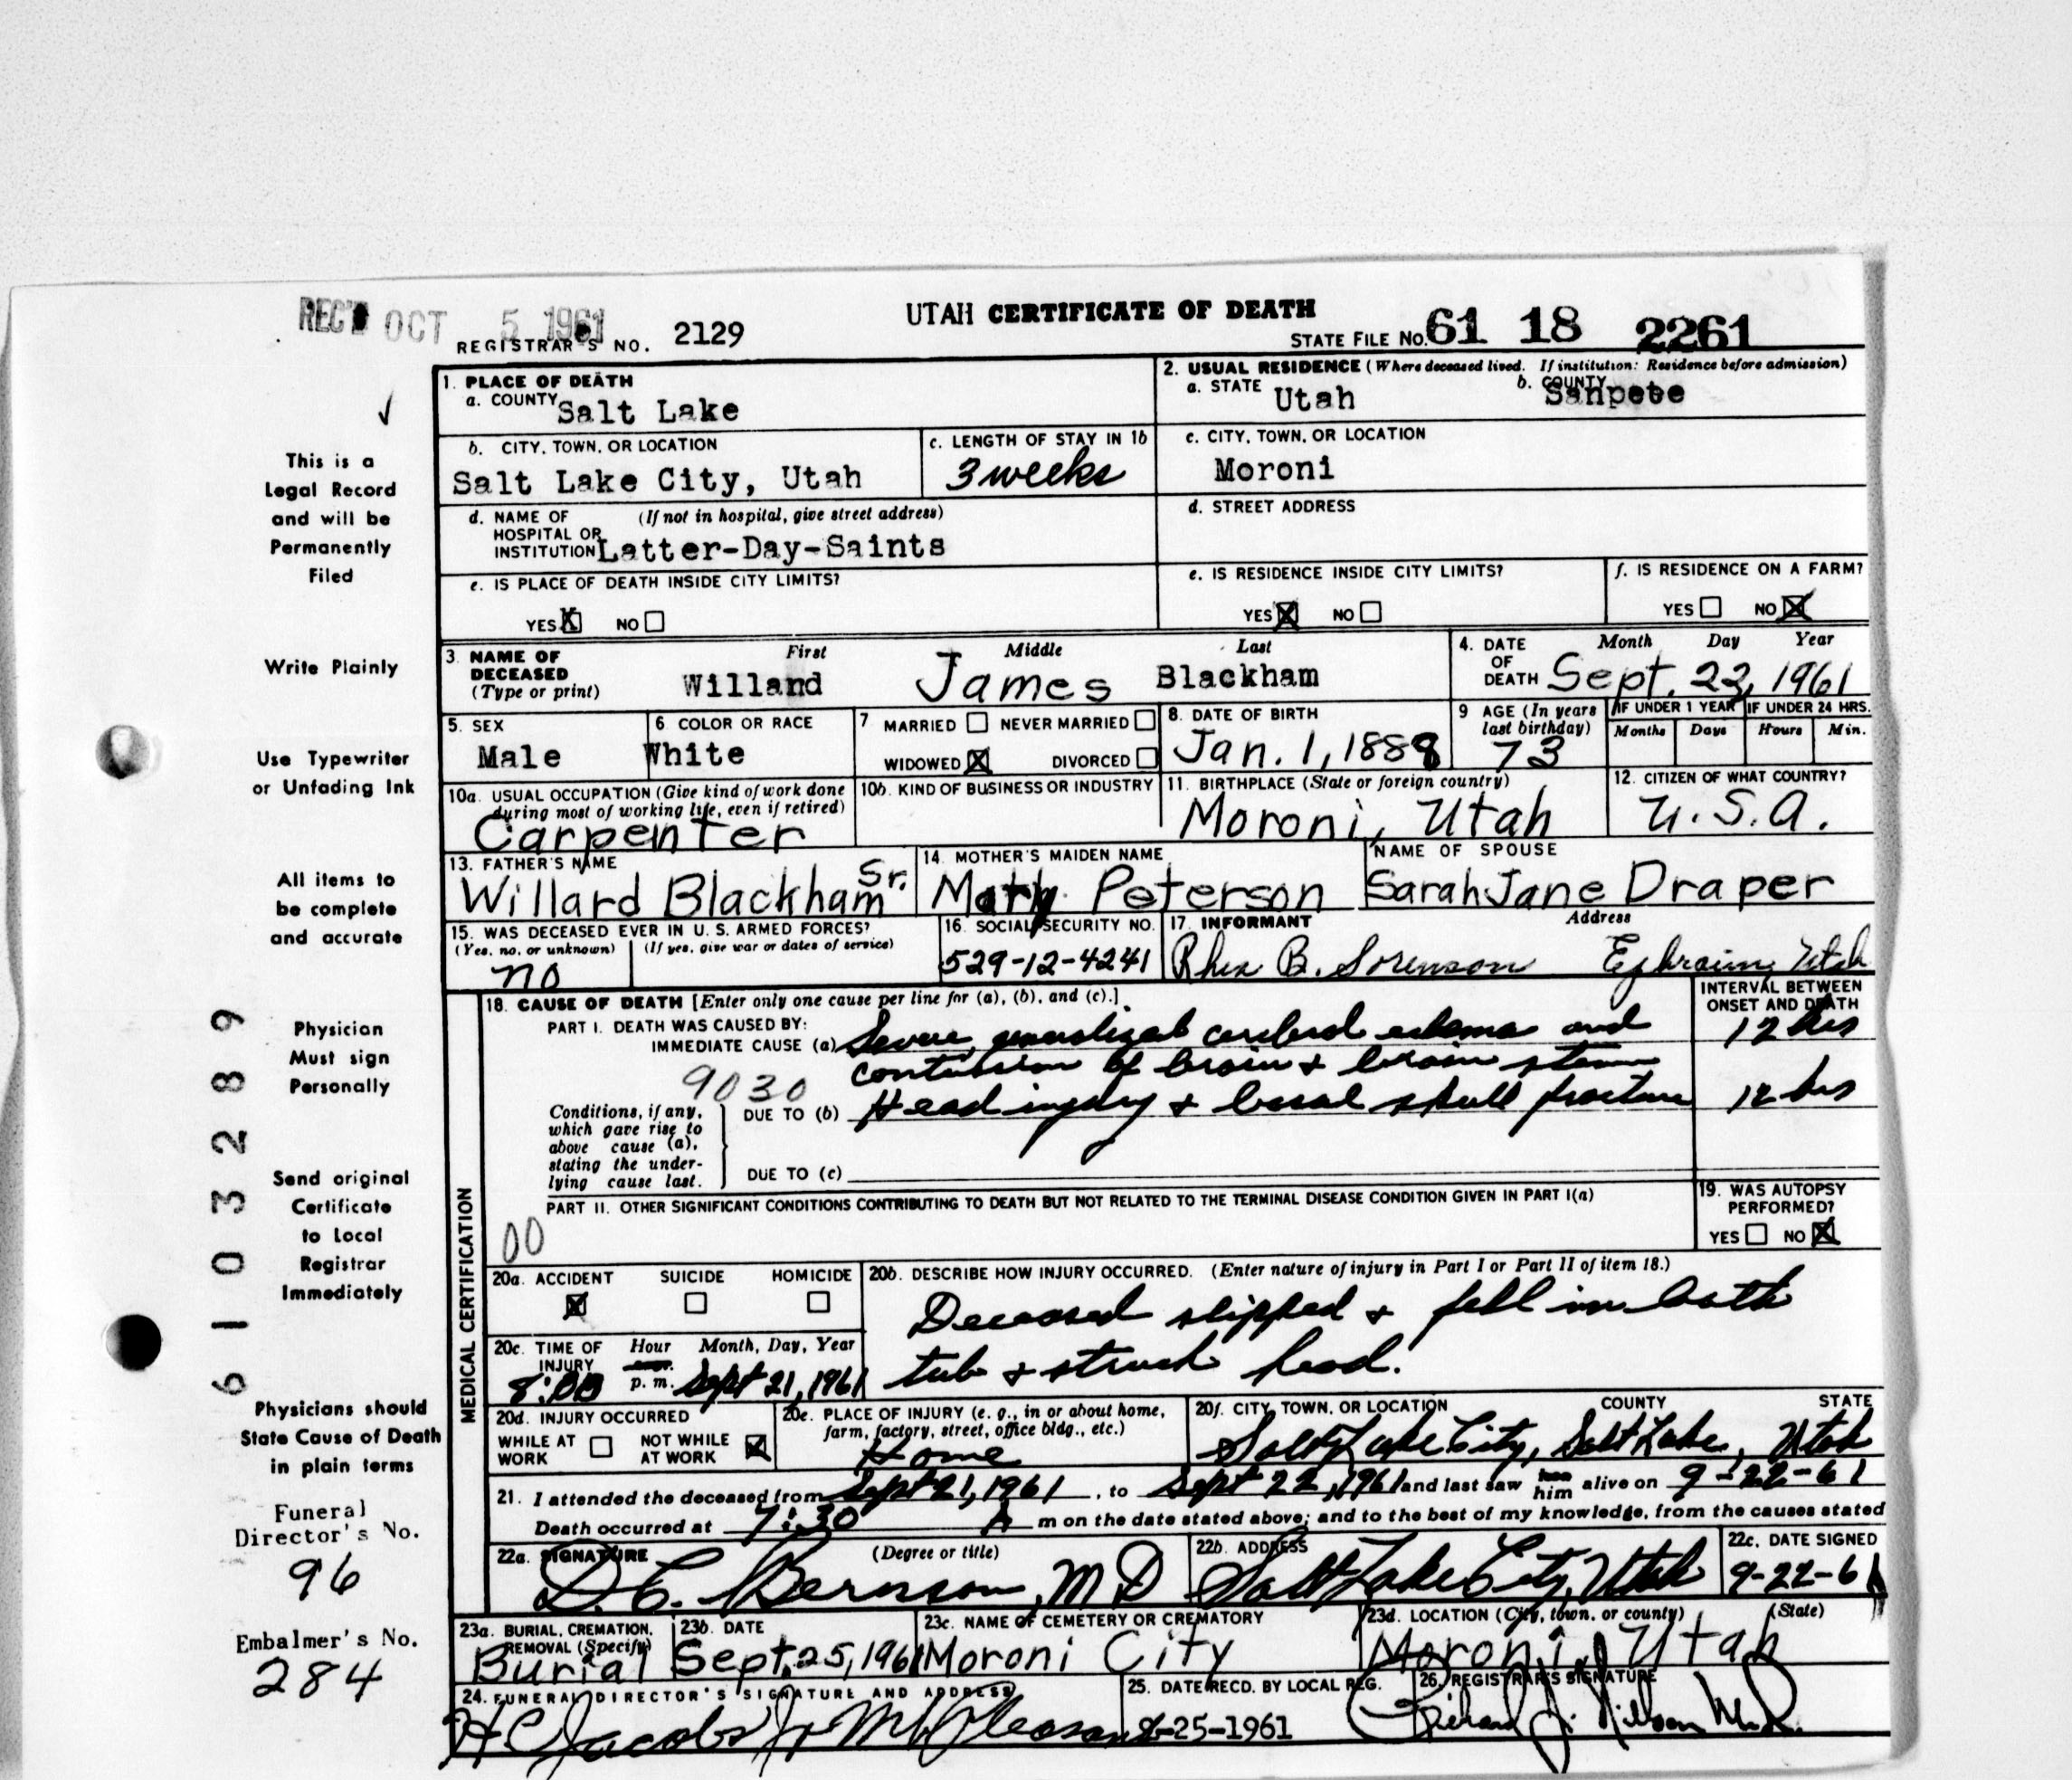 REC'D OCT 5 1961
REGISTRAR'S NO. 2129
UTAH CERTIFICATE OF DEATH
STATE FILE NO. 61 18 2261
1. PLACE OF DEATH
a. COUNTY Salt Lake
2. USUAL RESIDENCE (Where deceased lived. If institution: Residence before admission)
a. STATE Utah b. COUNTY Sanpete
b. CITY, TOWN, OR LOCATION
Salt Lake City, Utah
c. LENGTH OF STAY IN 1b
3 weeks
c. CITY, TOWN, OR LOCATION
Moroni
d. NAME OF HOSPITAL OR INSTITUTION (If not in hospital, give street address)
Latter-Day-Saints
d. STREET ADDRESS
e. IS PLACE OF DEATH INSIDE CITY LIMITS?
YES X NO
e. IS RESIDENCE INSIDE CITY LIMITS?
YES X NO
f. IS RESIDENCE ON A FARM?
YES NO X
3. NAME OF DECEASED (Type or print)
First Middle Last
Willand James Blackham
4. DATE OF DEATH Month Day Year
Sept. 22, 1961
5. SEX
Male
6 COLOR OR RACE
White
7 MARRIED NEVER MARRIED
WIDOWED X DIVORCED
8. DATE OF BIRTH
Jan. 1, 1888
9 AGE (In years last birthday)
73
IF UNDER 1 YEAR IF UNDER 24 HRS.
Months Days Hours Min.
10a. USUAL OCCUPATION (Give kind of work done during most of working life, even if retired)
Carpenter
10b. KIND OF BUSINESS OR INDUSTRY
11. BIRTHPLACE (State or foreign country)
Moroni, Utah
12. CITIZEN OF WHAT COUNTRY?
U.S.A.
13. FATHER'S NAME
Willard Blackham Sr.
14. MOTHER'S MAIDEN NAME
Mary Peterson
NAME OF SPOUSE
Sarah Jane Draper
15. WAS DECEASED EVER IN U. S. ARMED FORCES?
(Yes, no, or unknown) (If yes, give war or dates of service)
no
16. SOCIAL SECURITY NO.
529-12-4241
17. INFORMANT Address
B. Sorenson Ephraim, Utah
18. CAUSE OF DEATH [Enter only one cause per line for (a), (b), and (c).]
INTERVAL BETWEEN ONSET AND DEATH
PART I. DEATH WAS CAUSED BY:
IMMEDIATE CAUSE (a) Severe generalized cerebral edema and 12 hrs
contusion of brain & brain stem
9030
Conditions, if any, which gave rise to above cause (a), stating the underlying cause last.
DUE TO (b) Head injury & basal skull fracture 12 hrs
DUE TO (c)
PART II. OTHER SIGNIFICANT CONDITIONS CONTRIBUTING TO DEATH BUT NOT RELATED TO THE TERMINAL DISEASE CONDITION GIVEN IN PART I(a)
00
19. WAS AUTOPSY PERFORMED?
YES NO X
20a. ACCIDENT SUICIDE HOMICIDE
X
20b. DESCRIBE HOW INJURY OCCURRED. (Enter nature of injury in Part I or Part II of item 18.)
Deceased slipped & fell in bath
tub & struck head.
20c. TIME OF INJURY Hour Month, Day, Year
8:00 a.m. p.m. Sept 21, 1961
20d. INJURY OCCURRED
WHILE AT WORK NOT WHILE AT WORK X
20e. PLACE OF INJURY (e. g., in or about home, farm, factory, street, office bldg., etc.)
Home
20f. CITY, TOWN, OR LOCATION COUNTY STATE
Salt Lake City, Salt Lake, Utah
21. I attended the deceased from Sept 21, 1961, to Sept 22, 1961 and last saw her him alive on 9-22-61
Death occurred at 7:30 A m on the date stated above; and to the best of my knowledge, from the causes stated
22a. SIGNATURE (Degree or title)
D.C. Bernson, MD
22b. ADDRESS
Salt Lake City, Utah
22c. DATE SIGNED
9-22-61
23a. BURIAL, CREMATION, REMOVAL (Specify)
Burial
23b. DATE
Sept. 25, 1961
23c. NAME OF CEMETERY OR CREMATORY
Moroni City
23d. LOCATION (City, town, or county) (State)
Moroni, Utah
24. FUNERAL DIRECTOR'S SIGNATURE AND ADDRESS
H C Jacobs Jr Mt Pleasant
25. DATE RECD. BY LOCAL REG.
9-25-1961
26. REGISTRAR'S SIGNATURE
Richard
MEDICAL CERTIFICATION
This is a
Legal Record
and will be
Permanently
Filed
Write Plainly
Use Typewriter
or Unfading Ink
All items to
be complete
and accurate
Physician
Must sign
Personally
Send original
Certificate
to Local
Registrar
Immediately
Physicians should
State Cause of Death
in plain terms
Funeral
Director's No.
96
Embalmer's No.
284
6103289